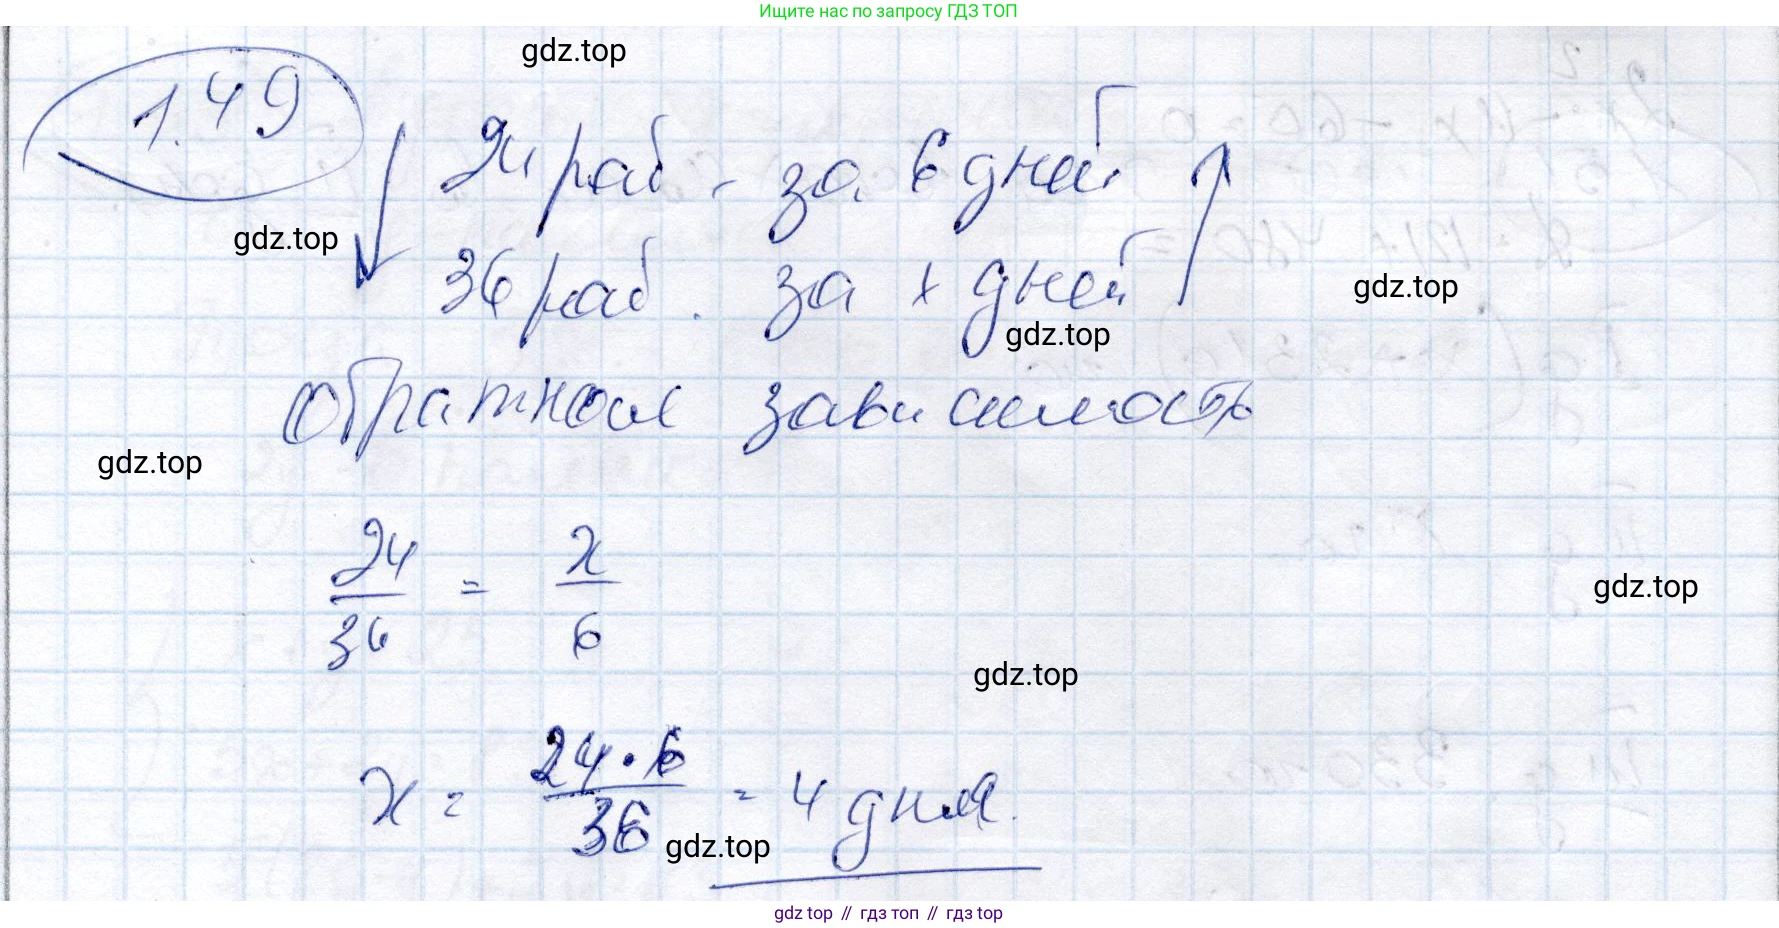 Ищите нас по запросу ГДЗ ТОП
gdz.top
1.49
24 раб - за 6 дней
gdz.top
36 раб. за x дней
gdz.top
gdz.top
обратная зависимость
gdz.top
24/36 = x/6
gdz.top
gdz.top
x = 24·6/36 = 4 дня.
gdz.top
gdz top // гдз топ // гдз top